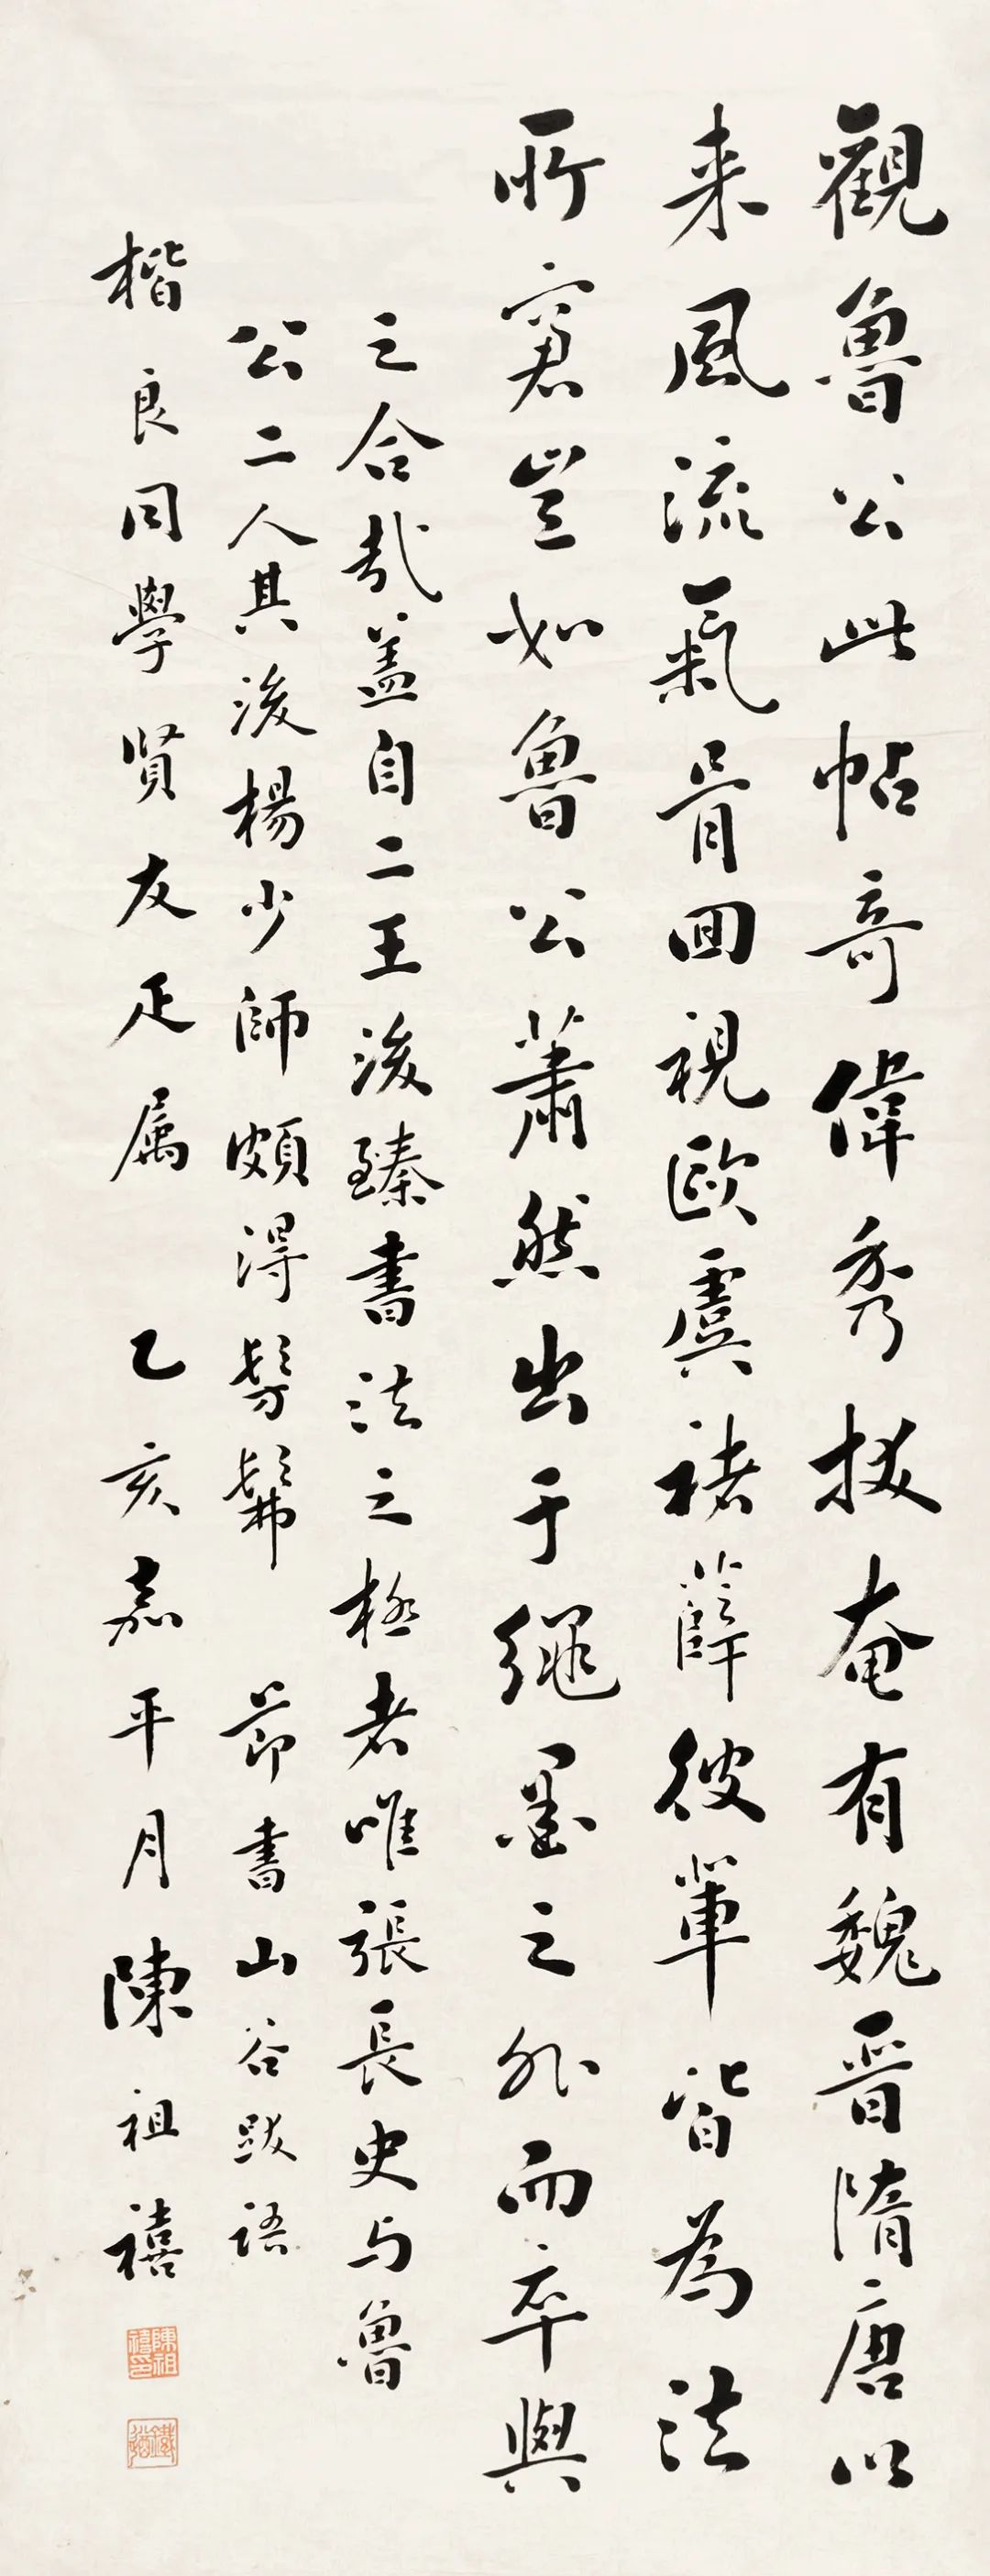 觀魯公此帖奇偉秀拔奄有魏晉隋唐以
来風流氣骨回視歐虞褚薛徐輩皆為法
所窘豈如魯公蕭然出于繩墨之外而卒與
之合哉蓋自二王後臻書法之極者唯張長史与魯
公二人其後楊少師頗得髣髴 節書山谷跋語
楷良同學賢友疋属 乙亥嘉平月 陳祖禧
陳祖禧印